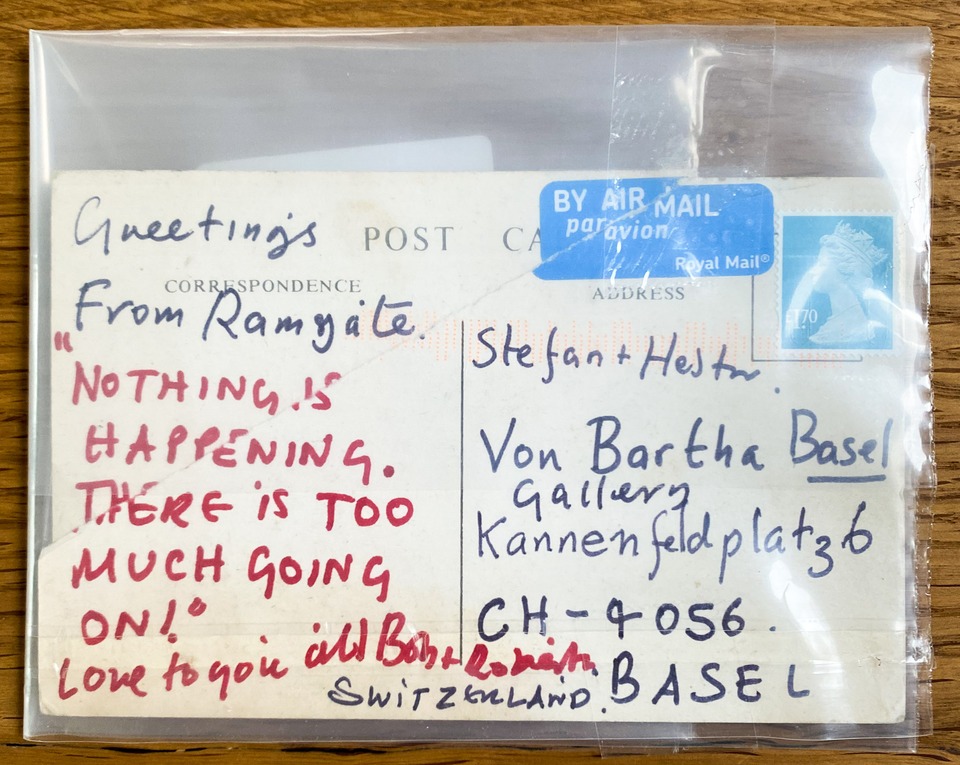 Greetings
POST CA
BY AIR MAIL
par avion
Royal Mail®
£1.70
CORRESPONDENCE
ADDRESS
From Ramsgate.
"NOTHING IS
HAPPENING.
THERE IS TOO
MUCH GOING
ON!"
Love to you all Bob + Roberta.
Stefan + Hester.
Von Bartha Basel
Gallery
Kannenfeldplatz 6
CH-4056.
SWITZERLAND. BASEL